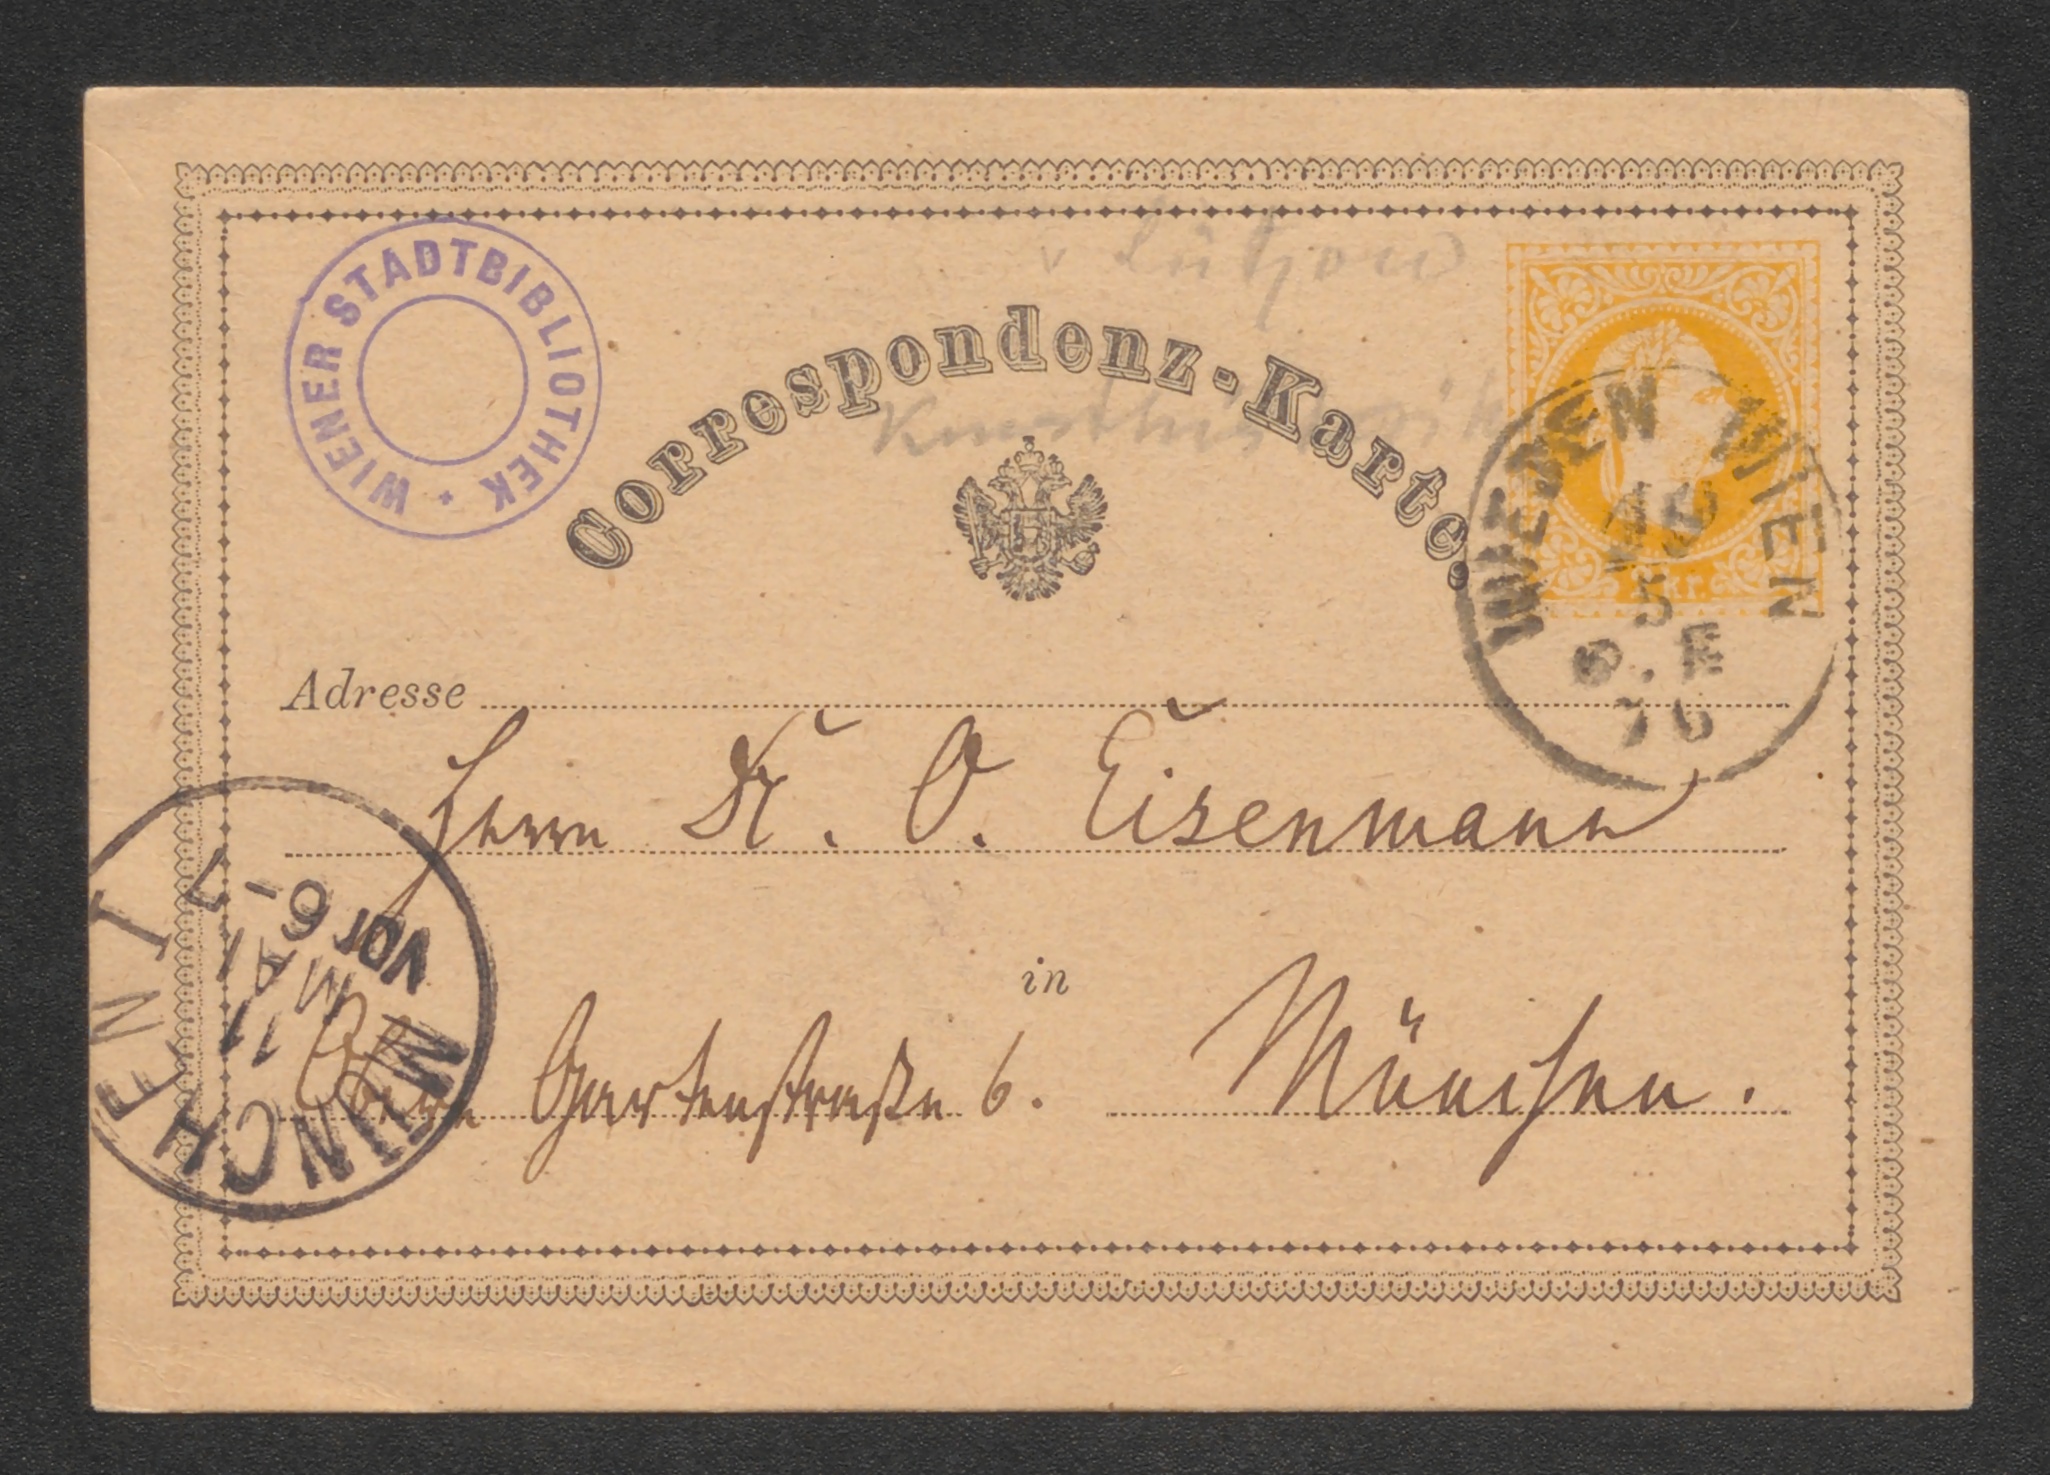 WIENER STADTBIBLIOTHEK
v Lützow
Correspondenz-Karte.
2 kr.
WIEDEN WIEN
10
5
6. E
76
Adresse
Herrn Dr. O. Eisenmann
MÜNCHEN I
11
MAI
Vor 6-7
in
Obere Gartenstraße 6. München.